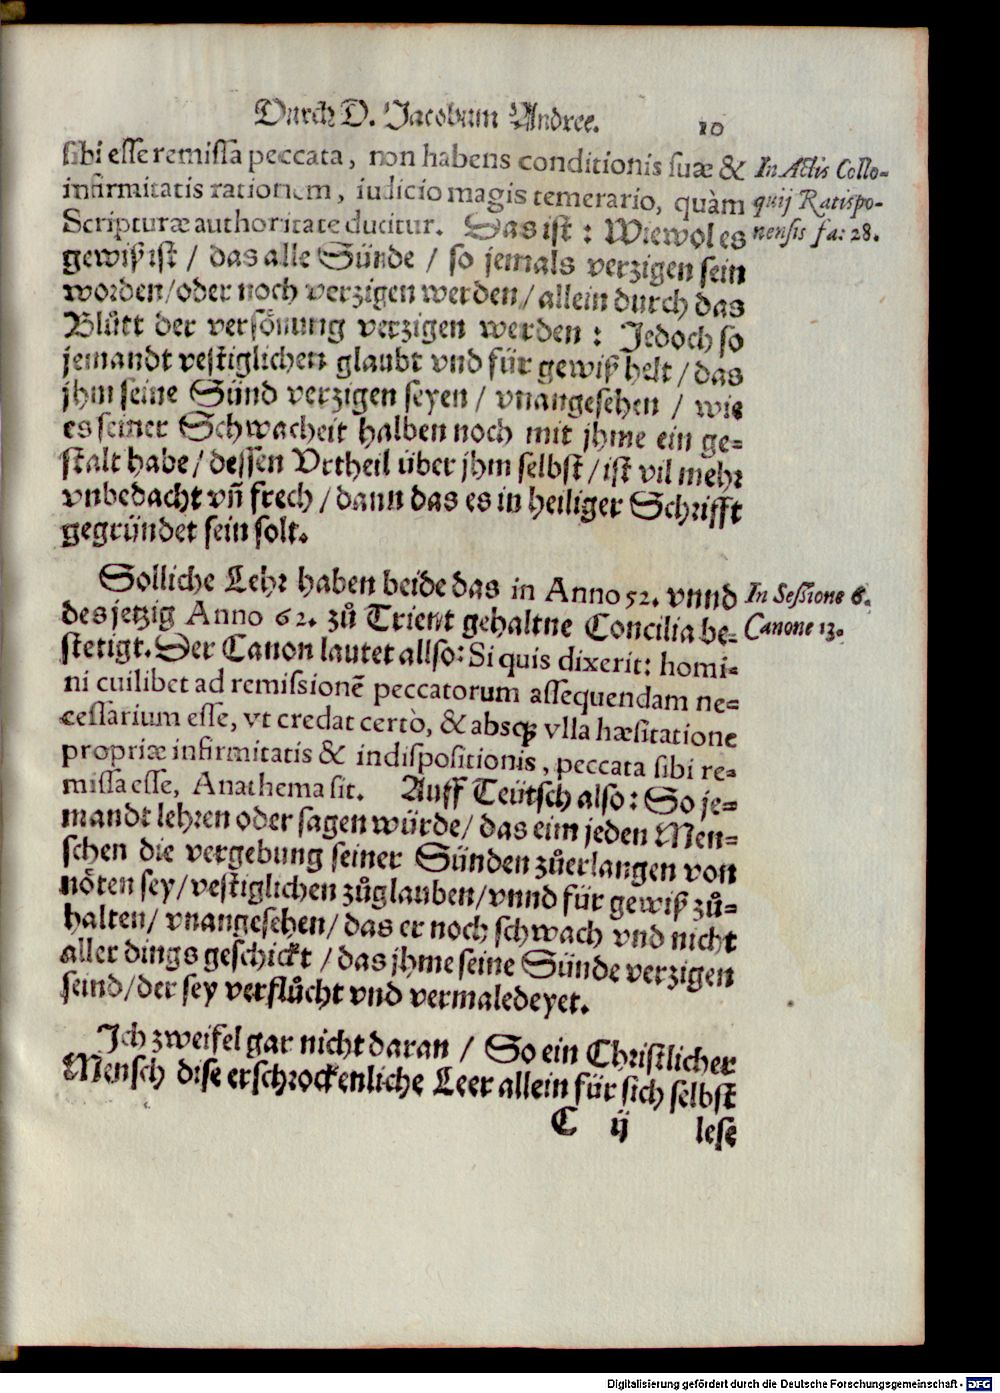 Durch D. Jacobum Andree. 10
sibi esse remissa peccata, non habens conditionis suæ &
infirmitatis rationem, iudicio magis temerario, quàm
Scripturæ authoritate ducitur. Das ist: Wiewol es
In Actis Collo-
quij Ratispo-
nensis fa: 28.
gewiß ist / das alle Sünde / so jemals verzigen sein
worden/oder noch verzigen werden/allein durch das
Blůtt der versönung verzigen werden: Jedoch so
jemandt vestiglichen glaubt vnd für gewiß helt/das
jhm seine Sünd verzigen seyen / vnangesehen / wie
es seiner Schwacheit halben noch mit jhme ein ge=
stalt habe/dessen Vrtheil über jhm selbst/ist vil mehr
vnbedacht vñ frech/dann das es in heiliger Schrifft
gegründet sein solt.
Solliche Lehr haben beide das in Anno 52. vnnd
des jetzig Anno 62. zů Trient gehaltne Concilia be=
In Sessione 6.
Canone 13.
stetigt. Der Canon lautet allso: Si quis dixerit: homi-
ni cuilibet ad remissionē peccatorum assequendam ne=
cessarium esse, vt credat certò, & absq; vlla hæsitatione
propriæ infirmitatis & indispositionis, peccata sibi re=
missa esse, Anathema sit. Auff Teütsch also: So je=
mandt lehren oder sagen würde/ das eim jeden Men=
schen die vergebung seiner Sünden zůerlangen von
nöten sey/vestiglichen zůglauben/vnnd für gewiß zů=
halten/ vnangesehen/das er noch schwach vnd nicht
aller dings geschickt /das jhme seine Sünde verzigen
seind/der sey verflůcht vnd vermaledeyet.
Ich zweifel gar nicht daran / So ein Christlicher
Mensch dise erschrockenliche Leer allein für sich selbst
C ij lese
Digitalisierung gefördert durch die Deutsche Forschungsgemeinschaft - DFG